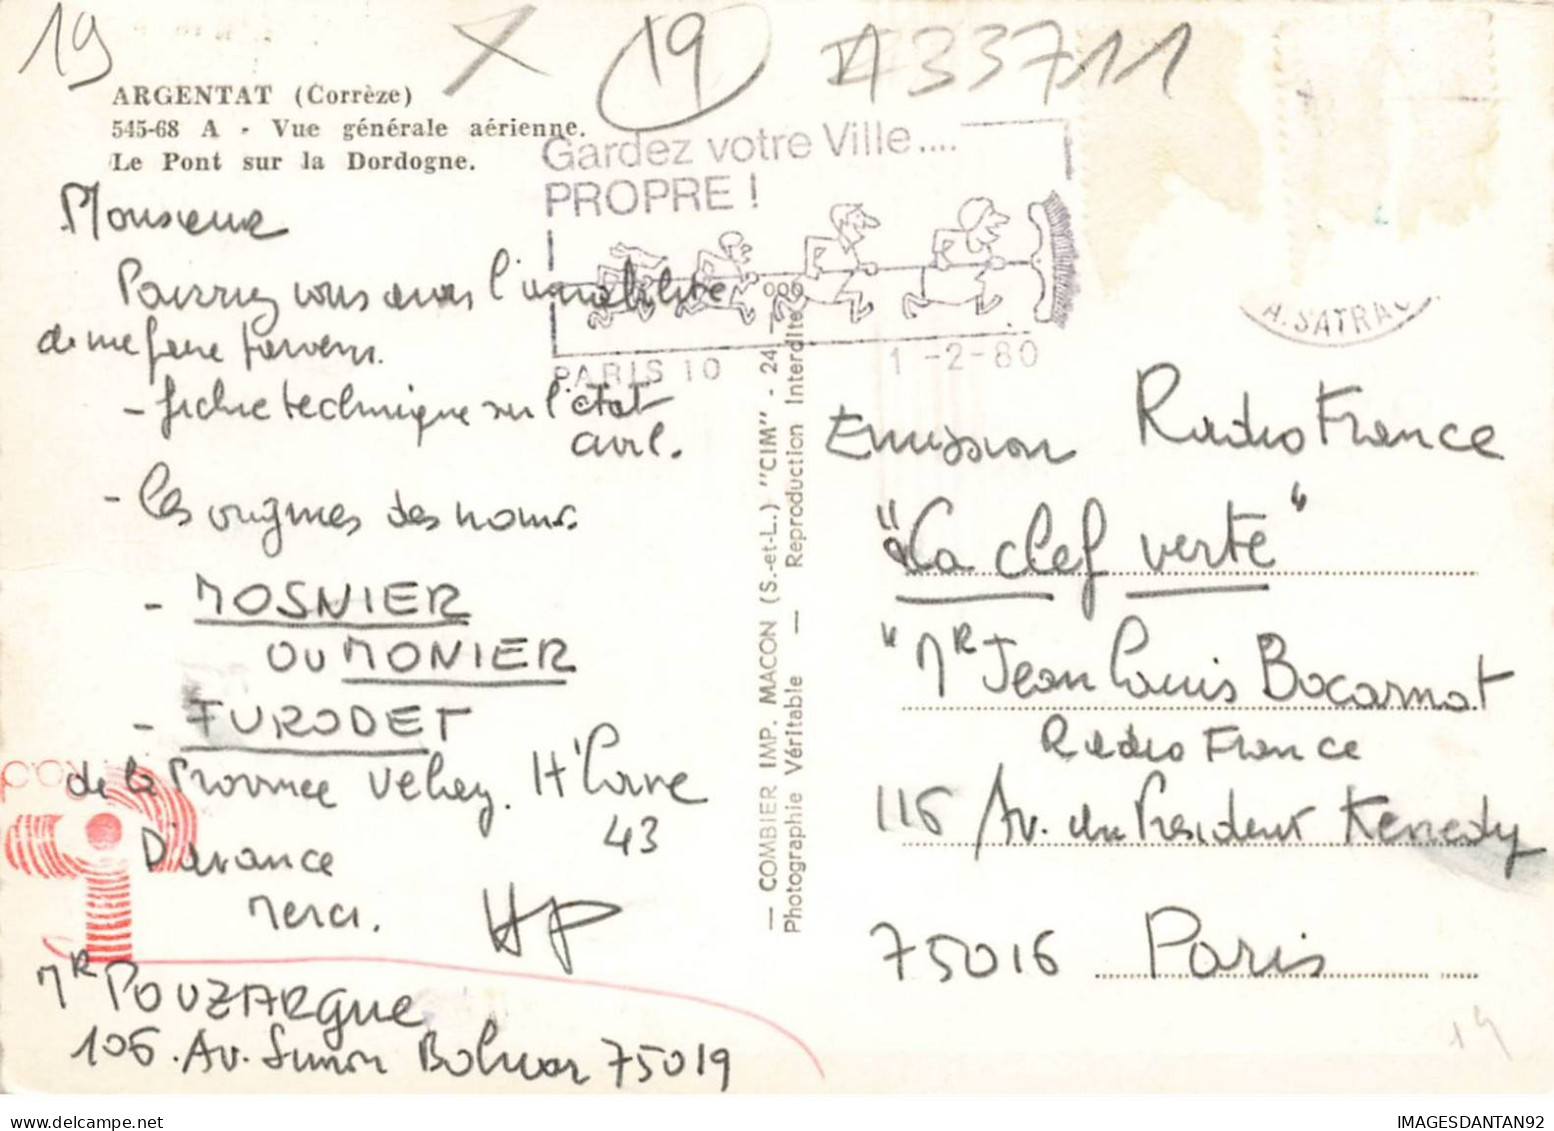 19
X
19
A33711
ARGENTAT (Corrèze)
545-68 A - Vue générale aérienne.
Le Pont sur la Dordogne.
Gardez votre Ville....
PROPRE !
006
PARIS 10 1-2-80
A. SATRAG
Monsieur
Pourriez vous avoir l'amabilité
de me faire parvenir.
- fiche technique sur l'état
civil.
- les origines des noms.
- MOSNIER
OU MONIER
- FURODET
de la Province Velay. Hte Loire
43
D'avance
Merci.
HP
Mr POUZARgue
106. Av. Simon Bolivar 75019
— COMBIER IMP. MACON (S.-et-L.) "CIM" - 24
Photographie Véritable — Reproduction Interdite
Emission Radio France
"La clef verte"
"Mr Jean Louis Bocarnot
Radio France
116 Av. du President Kenedy
75016 Paris
14
IMAGESDANTAN92